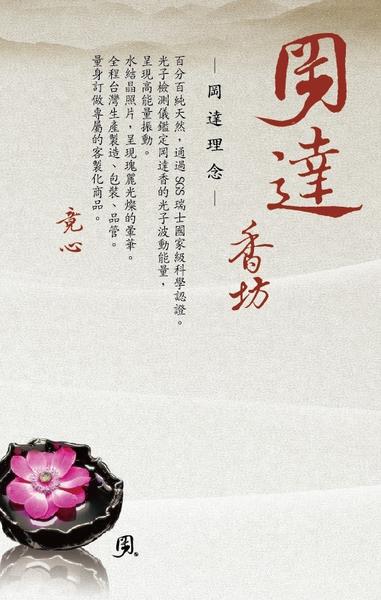 岡達
香坊
— 岡達理念 —
百分百純天然，通過 SGS 瑞士國家級科學認證。
光子檢測儀鑑定岡達香的光子波動能量，
呈現高能量振動。
水結晶照片，呈現瑰麗光燦的暈華。
全程台灣生產製造、包裝、品管。
量身訂做專屬的客製化商品。
竟心
岡